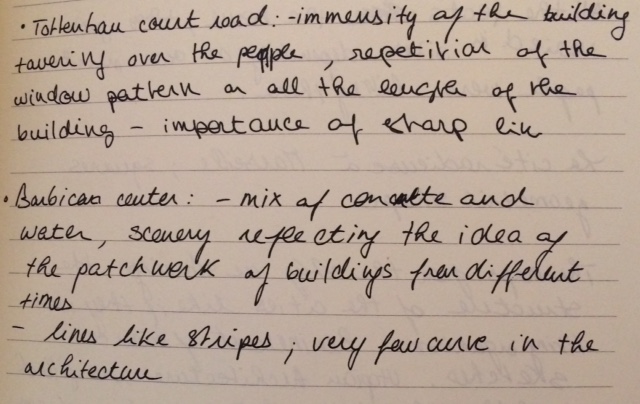 • Tottenham court road: - immensity of the building
tavering over the people, repetition of the
window pattern on all the length of the
building - importance of sharp lin
• Barbican center: - mix of concrete and
water, scenery reflecting the idea of
the patchwork of buildings from different
times
- lines like stripes; very few curve in the
architecture